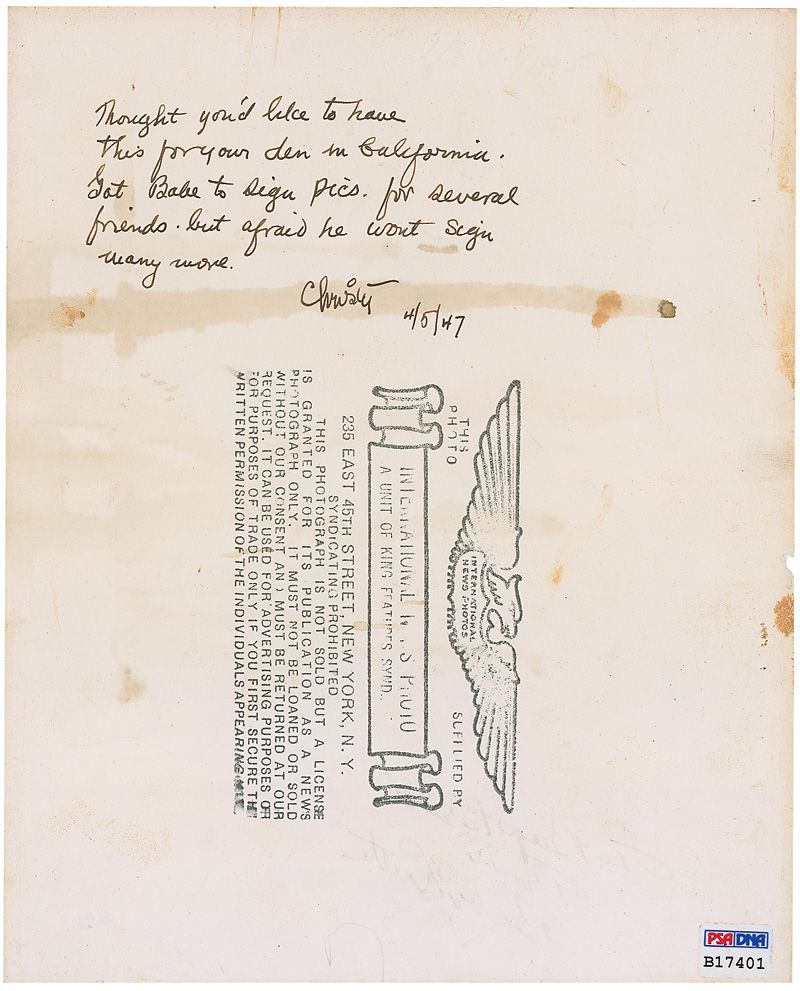 Thought you'd like to have
this for your den in California.
Got Babe to sign pics. for several
friends. but afraid he wont sign
many more.
Christy
4/5/47
THIS PHOTO SUPPLIED BY
INTERNATIONAL
NEWS PHOTOS
INTERNATIONAL N S PHOTO
A UNIT OF KING FEATURES SYND.
235 EAST 45TH STREET, NEW YORK, N. Y.
SYNDICATING PROHIBITED
THIS PHOTOGRAPH IS NOT SOLD BUT A LICENSE
IS GRANTED FOR ITS PUBLICATION AS A NEWS
PHOTOGRAPH ONLY. IT MUST NOT BE LOANED OR SOLD
WITHOUT OUR CONSENT AND MUST BE RETURNED AT OUR
REQUEST. IT CAN BE USED FOR ADVERTISING PURPOSES OR
FOR PURPOSES OF TRADE ONLY IF YOU FIRST SECURE THE
WRITTEN PERMISSION OF THE INDIVIDUALS APPEARING
PSA DNA
B17401